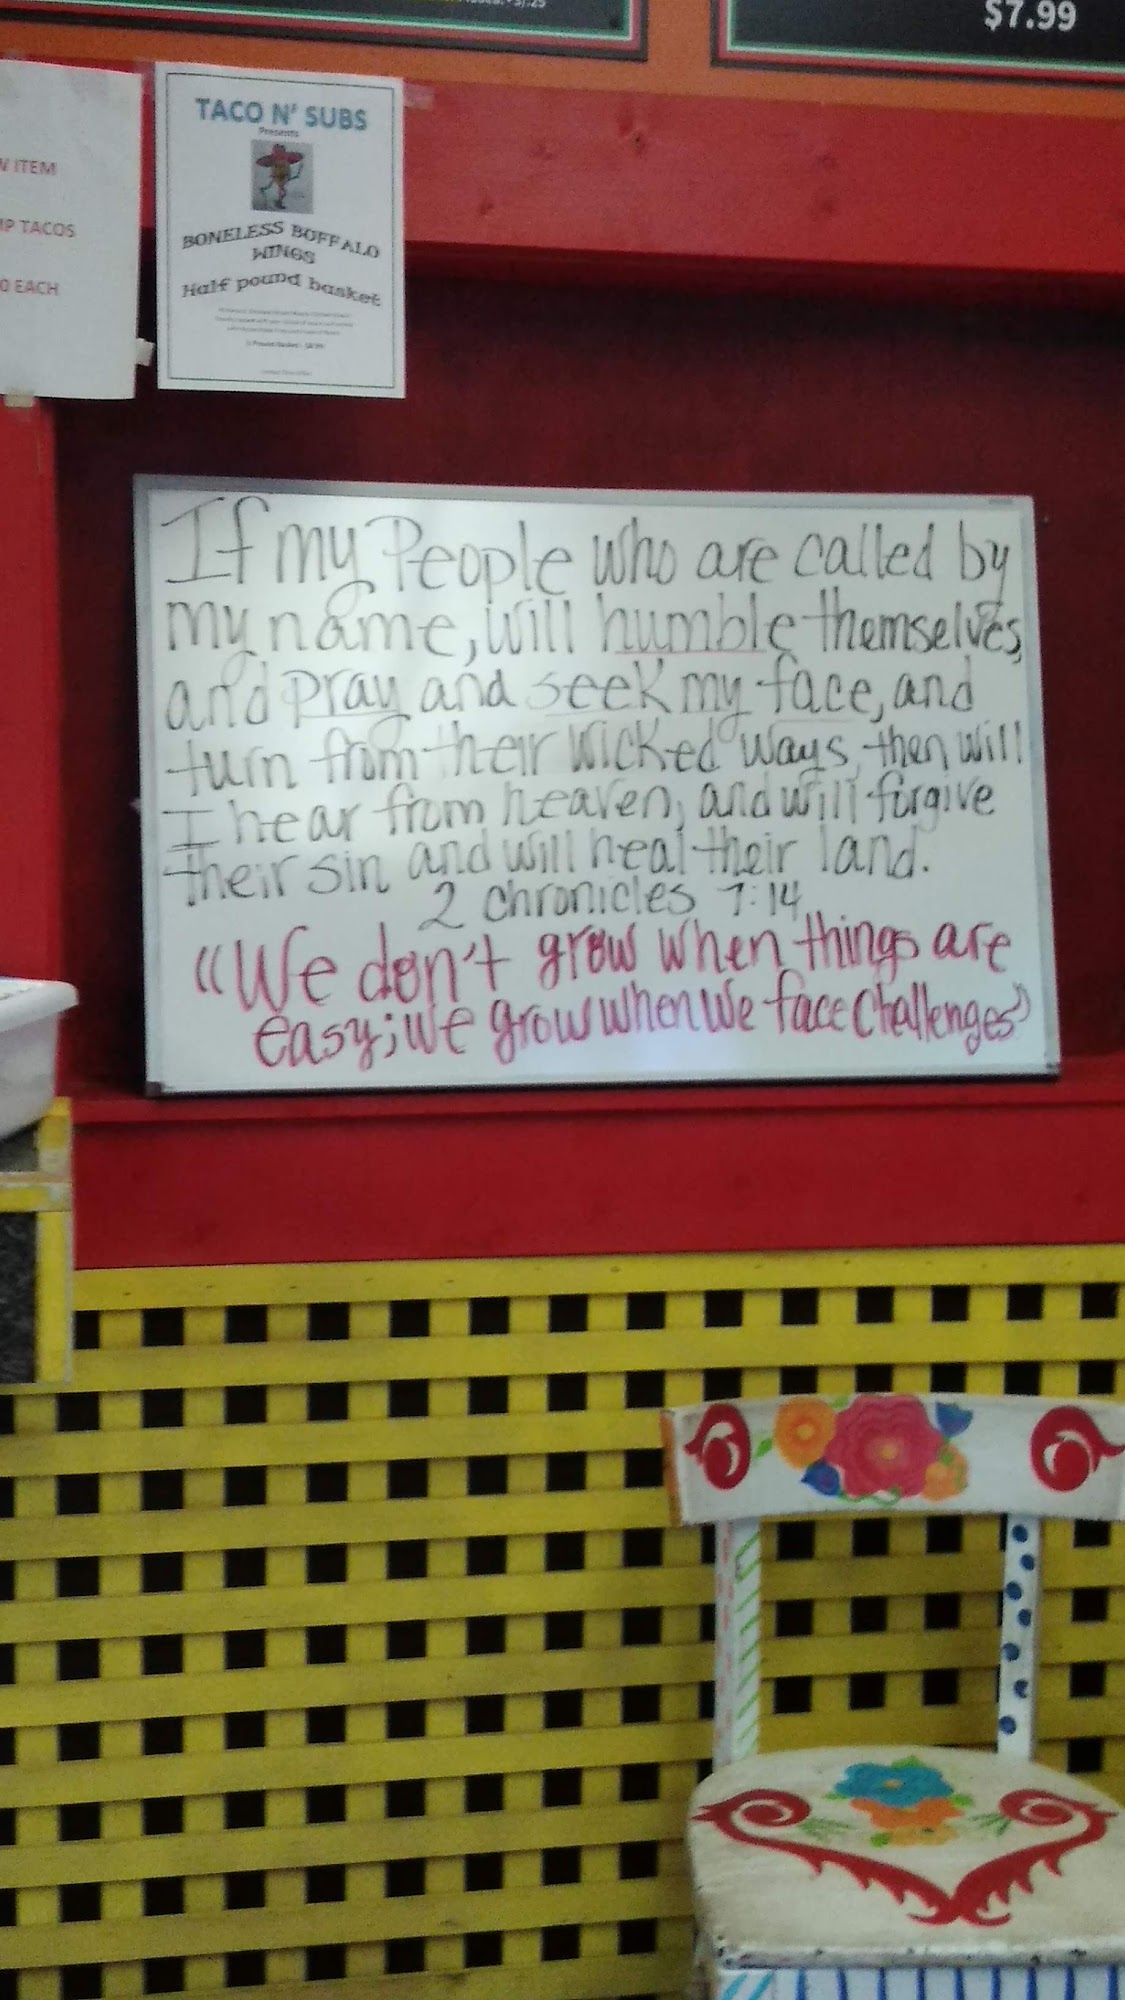 $7.99
ITEM
TACOS
EACH
TACO N' SUBS
Presents
BONELESS BUFFALO
WINGS
Half pound basket
If my People who are called by
my name, will humble themselves,
and pray and seek my face, and
turn from their wicked ways, then will
I hear from heaven, and will forgive
their sin and will heal their land.
2 chronicles 7:14
"We don't grow when things are
easy; we grow when we face challenges"